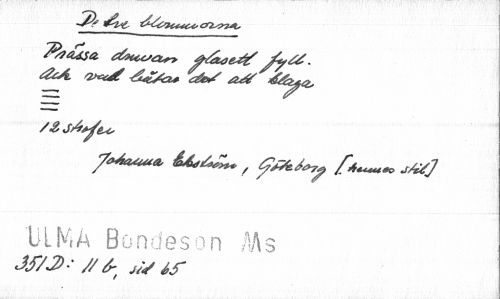 De tre blommorna
Prässa druvan glaset fyll.
Ack vad båtar det att klaga
12 strofer
Johanna Ekström, Göteborg [hennes stil]
ULMA Bondeson Ms
351 D: 11 b, sid 65